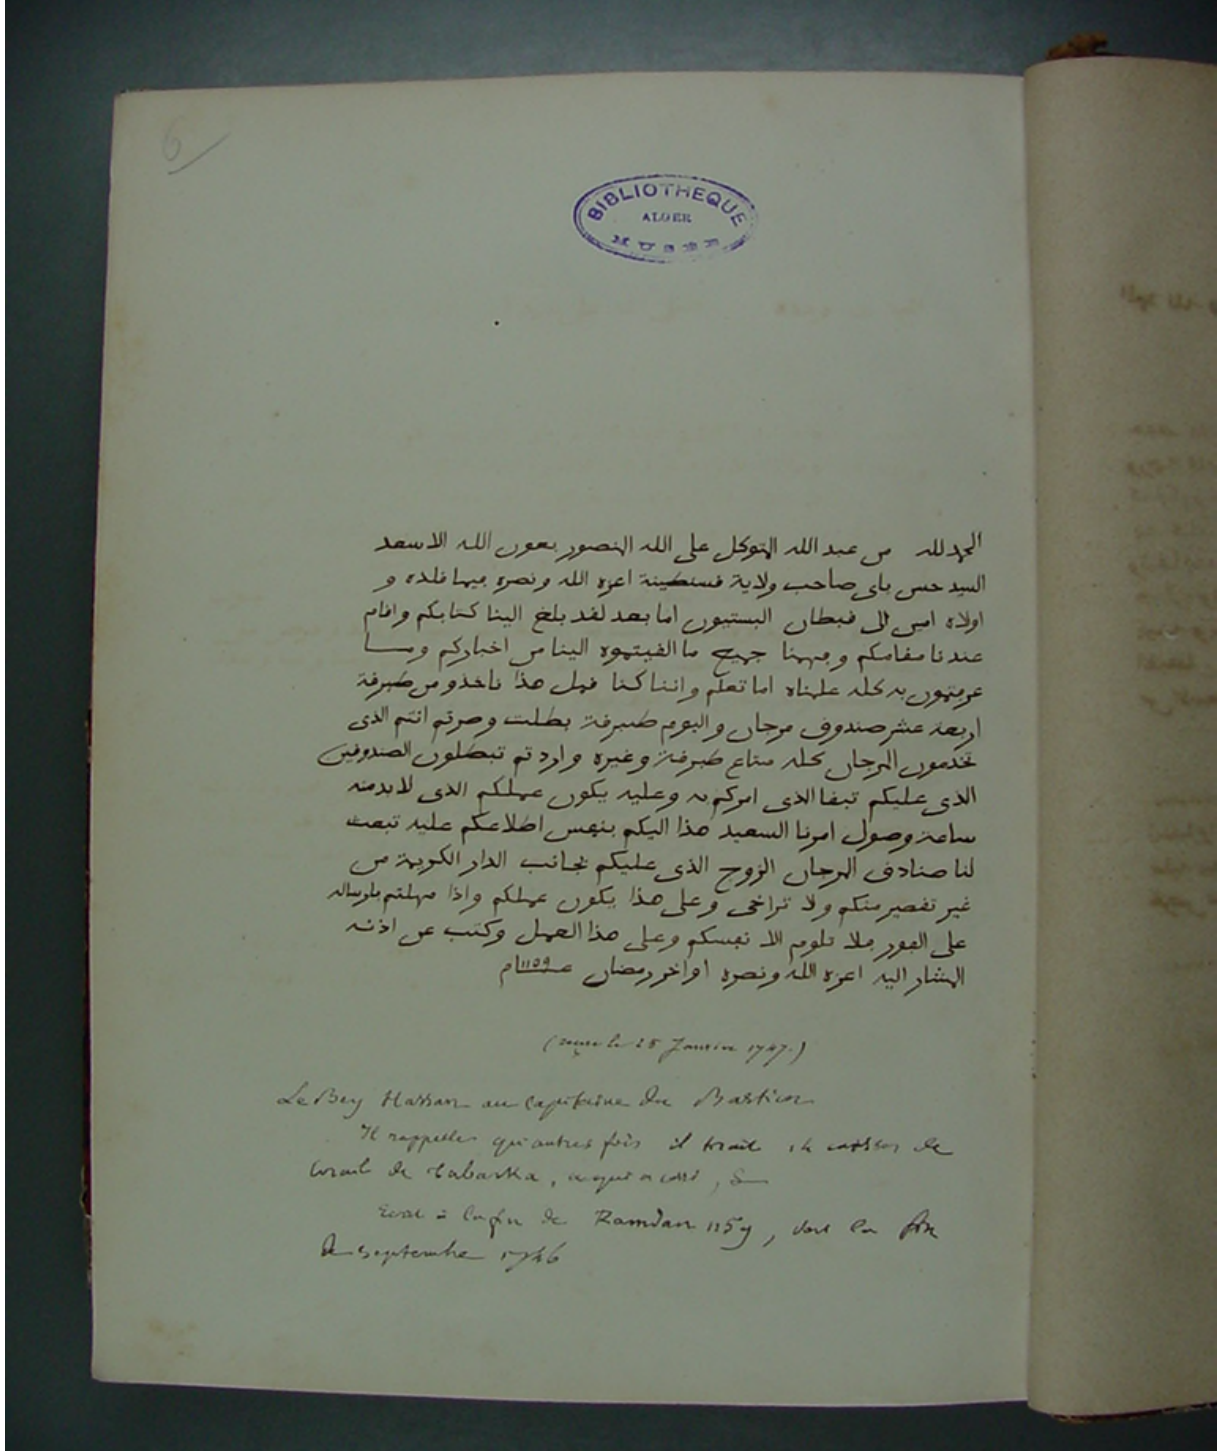 6
BIBLIOTHEQUE
ALGER
MUSEE
الحمد لله من عبد الله المتوكل على الله المنصور بعون الله الاسعد
السيد حسن باي صاحب ولاية قسنطينة اعزه الله ونصره فيما قلده و
اولاه امين الى قبطان البستيون اما بعد لقد بلغ الينا كتابكم واقام
عندنا مقامكم وفهمنا جميع ما الفيتموه الينا من اخباركم ومــا
عرفتمون به كله علمناه اما تعلم واننا كنا قبل هذا ناخذو من طبرقة
اربعة عشر صندوق مرجان واليوم طبرقة بطلت وصرتم انتم الذى
تخدمون المرجان كله متاع طبرقة وغيره واردتم تبطلون الصندوقين
الذى عليكم تبقا الذى امركم به وعليه يكون عملكم الذى لابد منه
ساعة وصول امرنا السعيد هذا اليكم بنفس اطلاعكم عليه تبعث
لنا صنادق المرجان الزوج الذى عليكم لجانب الدار الكريمة من
غير تقصير منكم ولا تراخى وعلى هذا يكون عملكم واذا مهلتم بارساله
على الفور فلا تلوم الا نفسكم وعلى هذا العمل وكتب عن اذنه
المشار اليه اعزه الله ونصره اواخر رمضان عــ1159ــام
(reçue le 25 Janvier 1747.)
Le Bey Hassan au Capitaine du Bastion
Il rappelle qu'autres fois il tirait 14 caisses de
Corail de Tabarka, ce qui a cessé, &
Ecrit à la fin de Ramdan 1159, vers la fin
de septembre 1746